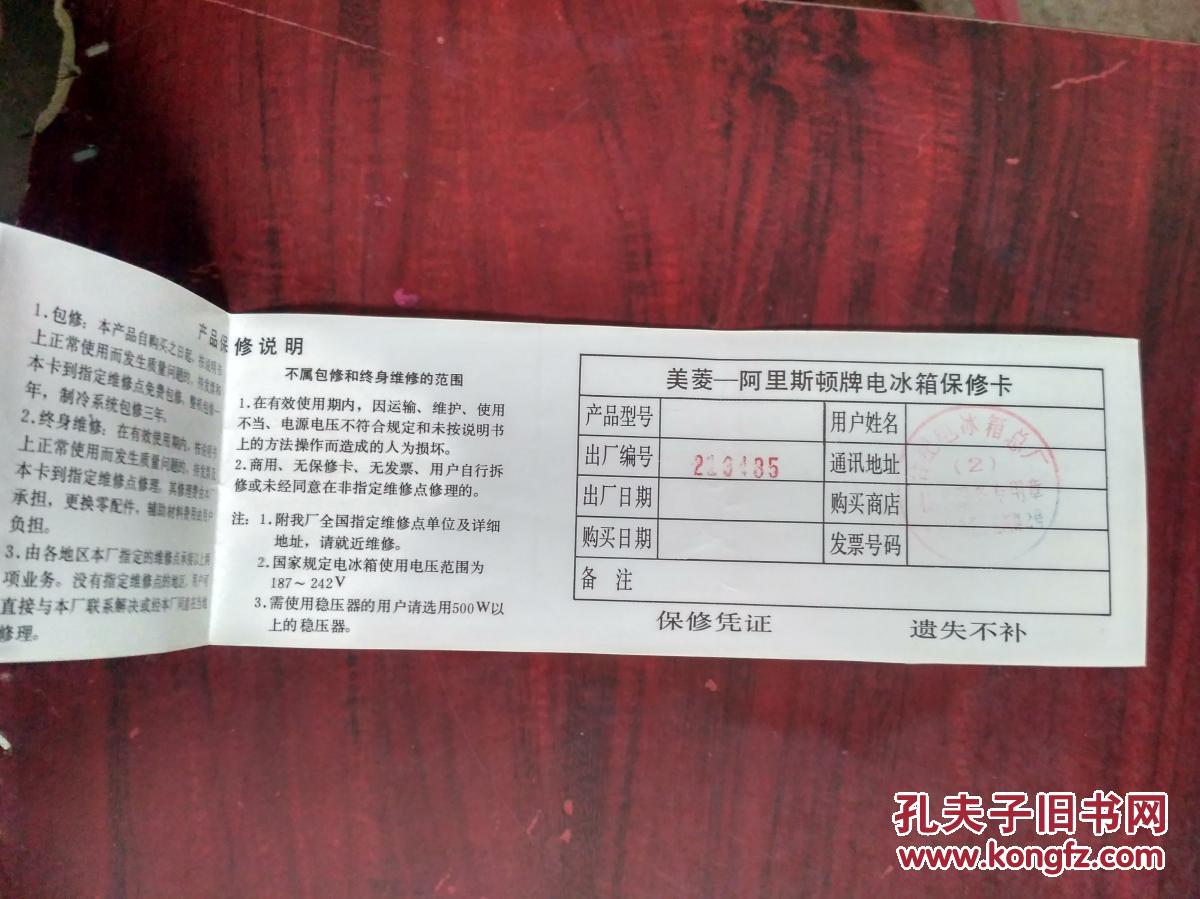 产品保修说明
1.包修：本产品自购买之日起，按说明书
上正常使用而发生质量问题的，持发票和
本卡到指定维修点免费包修，整机包修一
年，制冷系统包修三年。
2.终身维修：在有效使用期内，按说明书
上正常使用而发生质量问题的，持发票及
本卡到指定维修点修理，其修理费由本厂
承担，更换零配件，辅助材料费用由用户
负担。
3.由各地区本厂指定的维修点承接以上两
项业务。没有指定维修点的地区，用户可
直接与本厂联系解决或经本厂同意在当地
修理。
不属包修和终身维修的范围
1.在有效使用期内，因运输、维护、使用
不当、电源电压不符合规定和未按说明书
上的方法操作而造成的人为损坏。
2.商用、无保修卡、无发票、用户自行拆
修或未经同意在非指定维修点修理的。
注：1.附我厂全国指定维修点单位及详细
地址，请就近维修。
2.国家规定电冰箱使用电压范围为
187～242V
3.需使用稳压器的用户请选用500W以
上的稳压器。
美菱—阿里斯顿牌电冰箱保修卡
产品型号 用户姓名
出厂编号 通讯地址
出厂日期 购买商店
购买日期 发票号码
备 注
冰箱总厂
(2)
保修凭证 遗失不补
孔夫子旧书网
www.kongfz.com